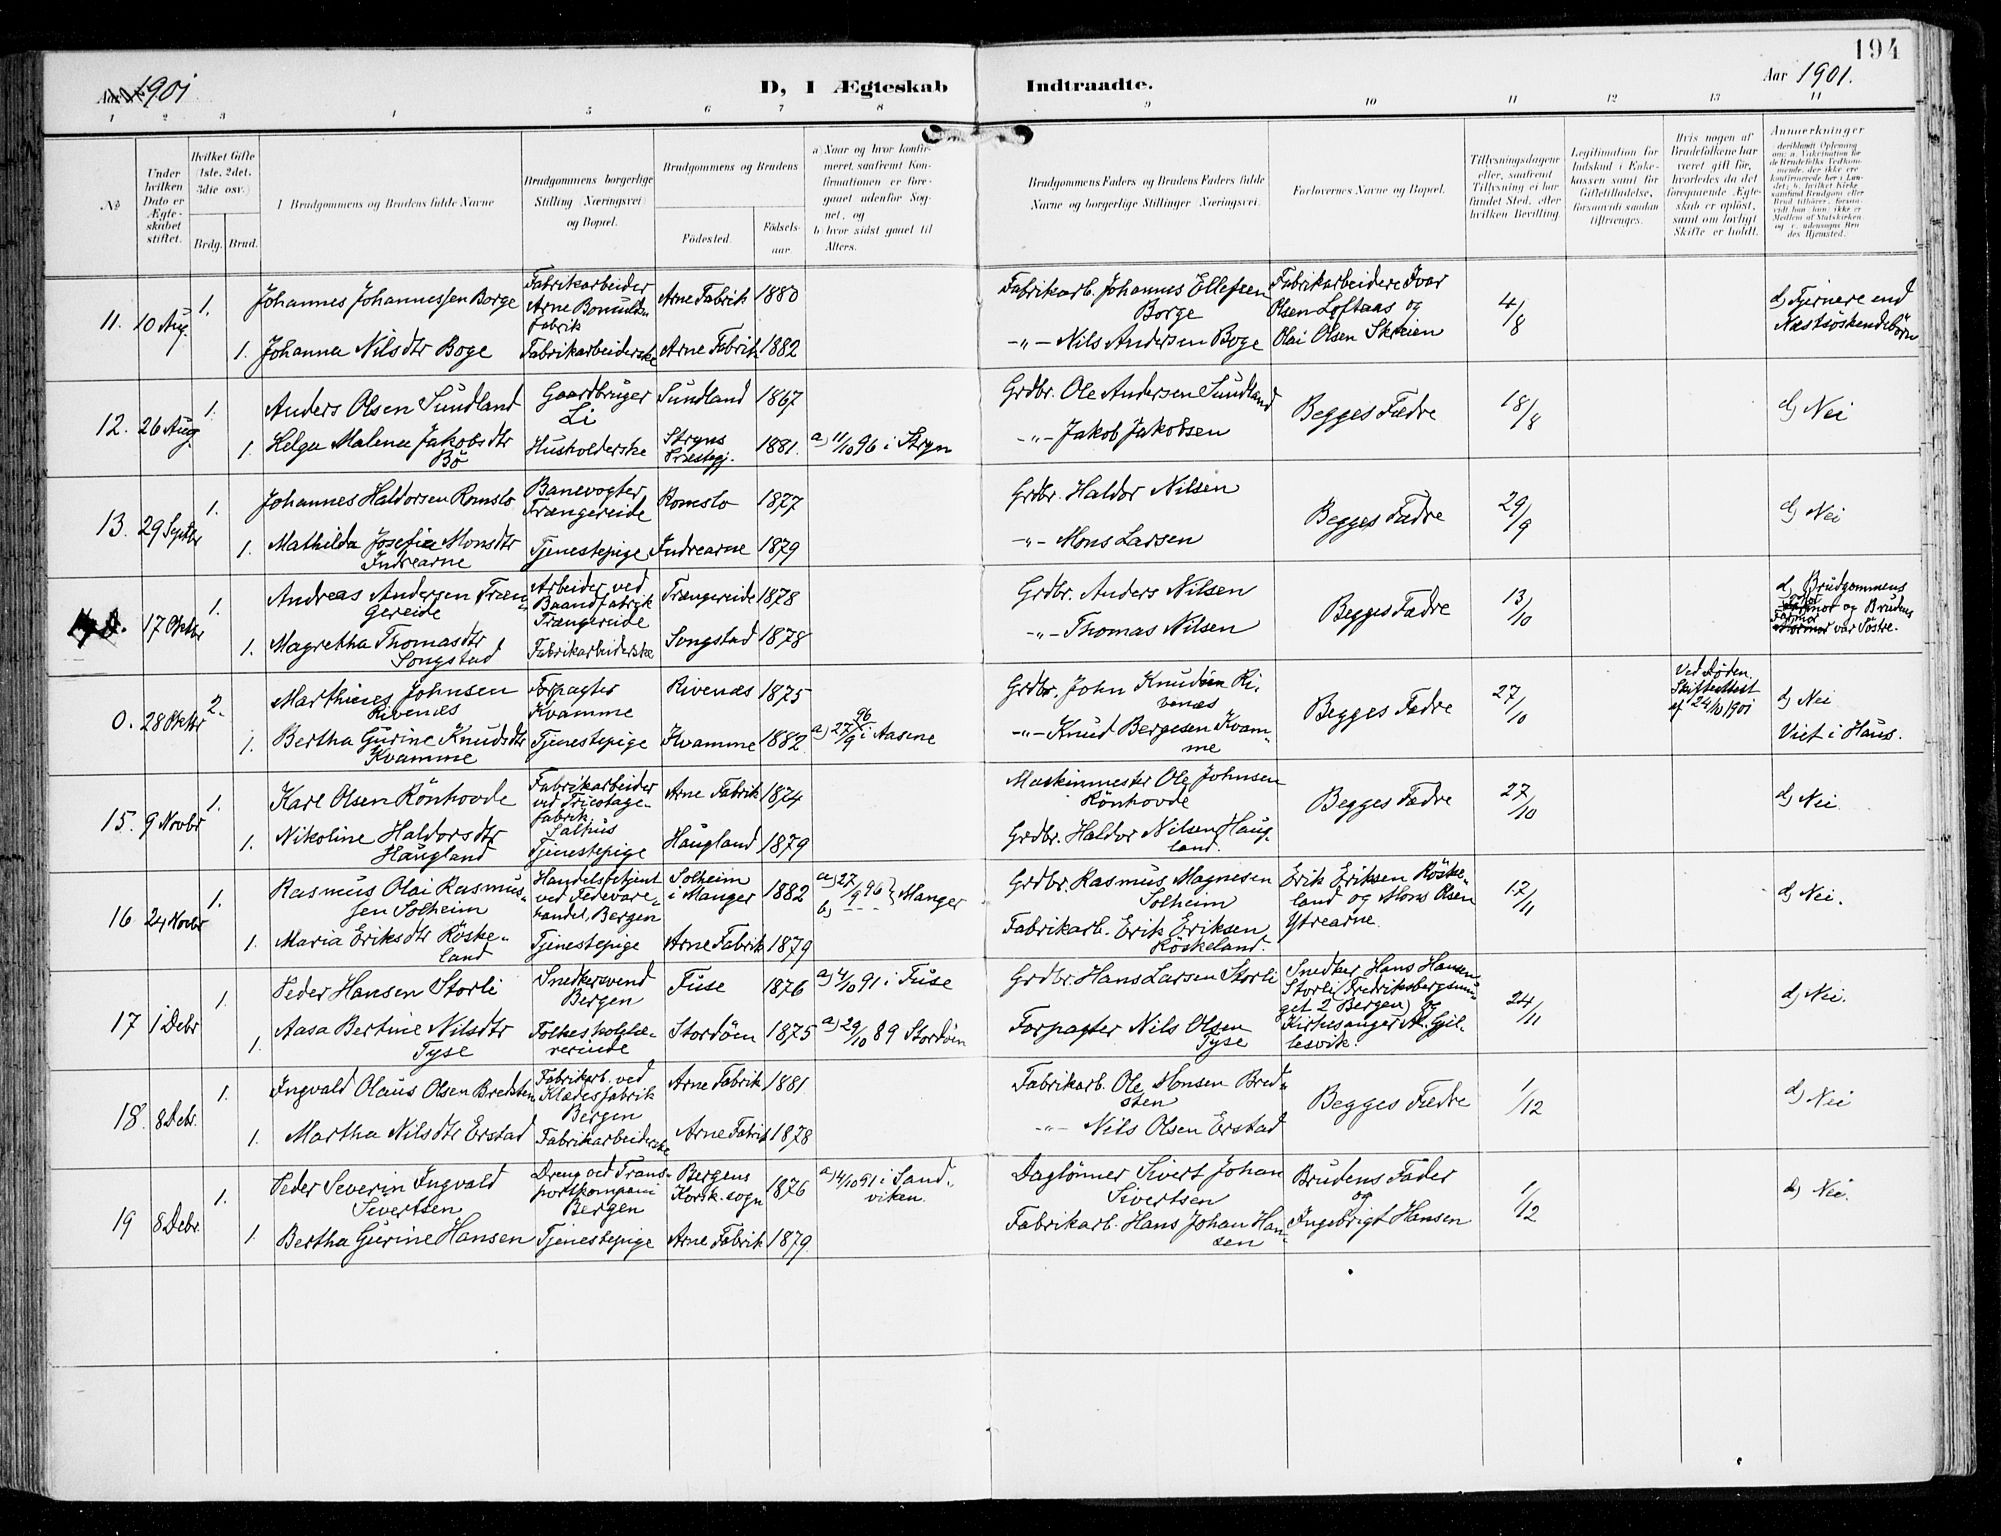 194
Aar 1901
D, I Ægteskab Indtraadte.
Aar 1901.
1 2 3 4 5 6 7 8 9 10 11 12 13 14
№
Under hvilken Dato er Ægteskabet stiftet.
Hvilket Gifte (1ste, 2det, 3die osv.)
Brdg. Brud.
I Brudgommens og Brudens fulde Navne
Brudgommens borgerlige Stilling (Næringsvei) og Bopæl.
Brudgommens og Brudens
Fødested.
Fødsels-aar
a) Naar og hvor konfirmeret, saafremt Konfirmationen er foregaaet udenfor Sognet, og
b) hvor sidst gaaet til Alters.
Brudgommens Faders og Brudens Faders fulde Navne og borgerlige Stillinger (Næringsvei.
Forlovernes Navne og Bopæl.
Tillysningsdagene eller, saafremt Tillysning ei har fundet Sted, efter hvilken Bevilling
Legitimation for Indskud i Enkekassen samt for Giftetilladelse, forsaavidt saadan tiltrænges.
Hvis nogen af Brudefolkene har været gift før, hvorledes da det foregaaende Ægteskab er opløst, samt om lovligt Skifte er holdt.
Anmerkninger
11. 10 Aug. 1.
Johannes Johannessen Borge
Fabrikarbeider
Arne Bomulds
fabrik
Arne Fabrik 1880
Fabrikarb. Johannes Ellefsen
Borge
Fabrikarbeidere Ivar
Olsen Løftaas og
Olai Olsen Skreien
4/8
d) Fjernere end
Næstsöskendebörn
1. Johanna Nilsdtr Boge
Fabrikarbeiderske
Arne Fabrik 1882
-„- Nils Andersen Boge
12. 26 Aug. 1.
Anders Olsen Sundland
Gaardbruger
Li
Sundland 1867
Grdbr. Ole Andersen Sundland
Begges Fædre
18/8
d) Nei
1. Helga Malena Jakobsdtr
Bö
Husholderske
Stryns
Præstegj.
1881. a) 11/10 96 i Stryn
-„- Jakob Jakobsen
13. 29 Septbr 1.
Johannes Haldorsen Romslo
Banevogter
Trængereide
Romslo 1877
Grdbr. Haldor Nilsen
Begges Fædre
29/9
d) Nei
1. Mathilda Josefia Monsdtr
Indrearne
Tjenestepige Indrearne 1879
-„- Mons Larsen
17 Oktbr 1.
Andreas Andersen Træn-
gereide
Arbeider ved
Baandfabrik
Trængereide
Trængereide 1878
Grdbr. Anders Nilsen
Begges Fædre
13/10
d) Brudgommens
og Brudens
Farmor
var Söstre.
1. Magretha Thomasdtr
Songstad
Fabrikarbeiderske
Songstad 1878
-„- Thomas Nilsen
0. 28 Oktbr 2.
Marthines Johnsen
Rivenæs
Forpagter
Kvamme
Rivenæs 1875
Grdbr. John Knudsen Ri-
venæs
Begges Fædre
27/10
Ved Döden.
Skifteattest
af 24/10 1901
d) Nei
Viet i Haus.
1. Bertha Gurine Knudsdtr
Kvamme
Tjenestepige Kvamme 1882 a) 27/9 96 i Aasene
-„- Knud Bergesen Kvam-
me
15. 9 Novbr 1.
Karl Olsen Rönhovde
Fabrikarbeider
ved Tricotage-
fabrik
Salhus
Arne Fabrik 1874
Maskinmester Ole Johnsen
Rönhovde
Begges Fædre
27/10
d) Nei.
1. Nikoline Haldorsdtr
Haugland
Tjenestepige Haugland 1879
Grdbr. Haldor Nilsen Haug-
land.
16 24 Novbr 1.
Rasmus Olai Rasmus-
sen Solheim
Handelsbetjent
ved Fedevare-
handel, Bergen
Solheim
i Manger 1882
a) 27/9 96
b) - - -
} Manger
Grdbr. Rasmus Magnesen
Solheim
Erik Eriksen Röske-
land og Mons Olsen
Ytrearne.
17/11
d) Nei.
1. Maria Eriksdtr Röske-
land
Tjenestepige Arne Fabrik 1879
Fabrikarb. Erik Eriksen
Röskeland.
17 1 Debr 1.
Peder Hansen Storli
Snedkersvend
Bergen
Fuse 1876 a) 4/10 91 i Fuse
Grdbr. Hans Larsen Storli
Snedker Hans Hansen
Storli (Fredriksbergsmu-
get 2 Bergen) og
Kirkesanger A. Gjil-
lesvik.
24/11
d) Nei.
1. Aasa Bertine Nilsdtr
Tyse
Folkeskolelæ-
rerinde
Stordöen 1875 a) 29/10 89 Stordöen
Forpagter Nils Olsen
Tyse
18. 8 Debr. 1.
Ingvald Olaus Olsen Bredsten
Fabrikarb. ved
Klædesfabrik
Bergen
Arne Fabrik 1881
Fabrikarb. Ole Monsen Bred-
sten
Begges Fædre
1/12
d) Nei
1. Martha Nilsdtr Erstad
Fabrikarbeiderske
Arne Fabrik 1878
-„- Nils Olsen Erstad
19 8 Debr. 1.
Peder Severin Ingvald
Sivertsen
Dreng ved Trans-
portkompani
Bergen
Bergens
Korsk. sogn 1876
a) 4/10 91 i Sand-
viken.
Daglönner Sivert Johan
Sivertsen
Brudens Fader
og
Ingebrigt Hansen
1/12
d) Nei.
1. Bertha Gurine Hansen
Tjenestepige Arne Fabrik 1879.
Fabrikarb. Hans Johan Han-
sen